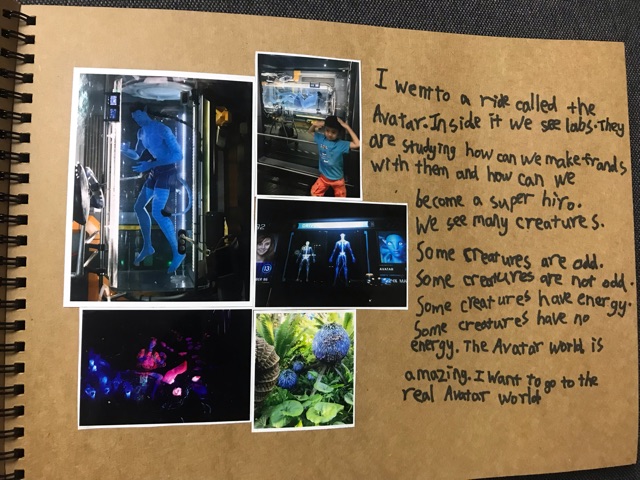 I went to a ride called the
Avatar. Inside it we see labs. They
are studying how can we make frands
with them and how can we
become a super hiro.
We see many creatures.
Some creatures are odd.
Some creatures are not odd.
Some creatures have energy.
Some creatures have no
energy. The Avatar world is
amazing. I want to go to the
real Avatar world
AVATAR